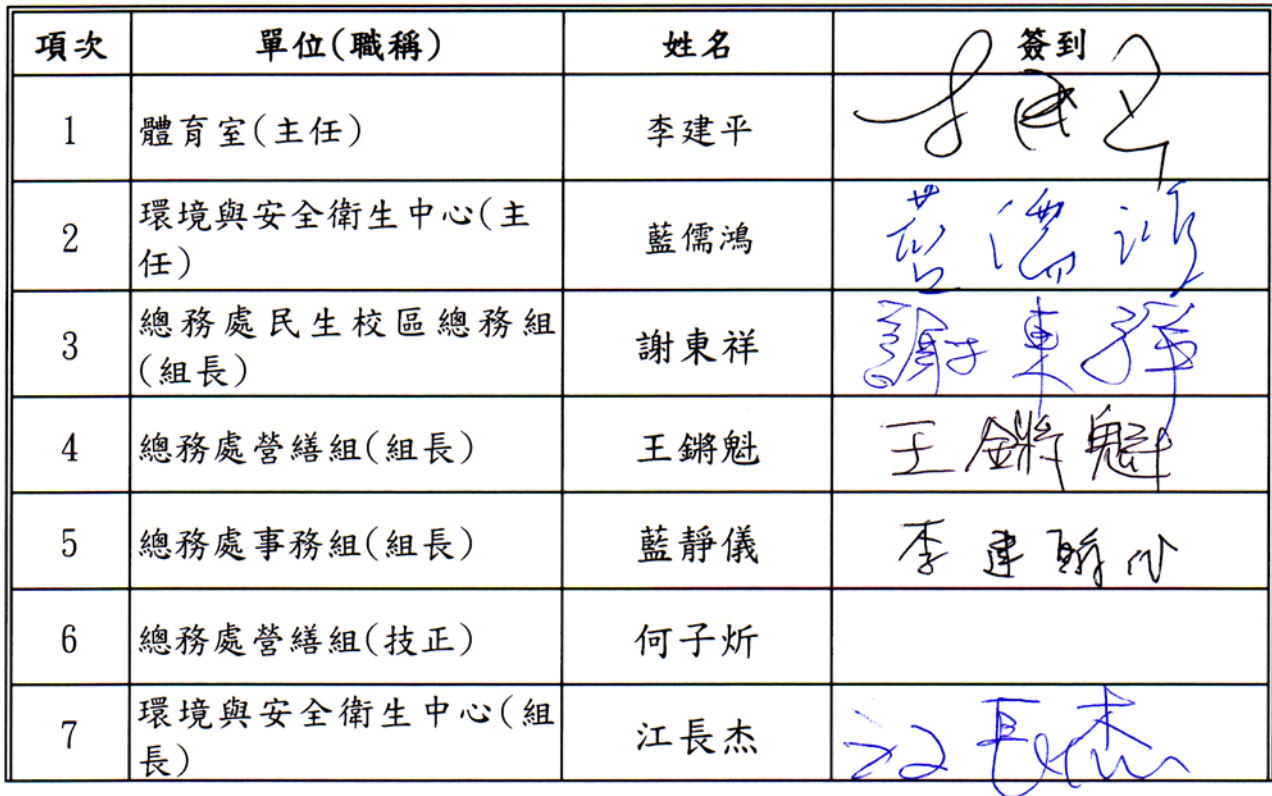 項次 單位(職稱) 姓名 簽到
1 體育室(主任) 李建平 李建平
2 環境與安全衛生中心(主
任) 藍儒鴻 藍儒鴻
3 總務處民生校區總務組
(組長) 謝東祥 謝東祥
4 總務處營繕組(組長) 王鏘魁 王鏘魁
5 總務處事務組(組長) 藍靜儀 李建
6 總務處營繕組(技正) 何子炘
7 環境與安全衛生中心(組
長) 江長杰 江長杰